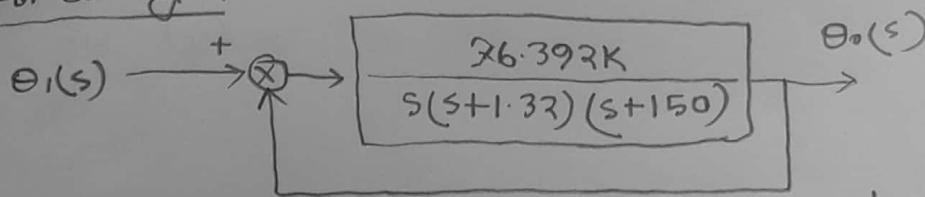 +
θ₁(s)
76.392K
s(s+1.32)(s+150)
θ₀(s)